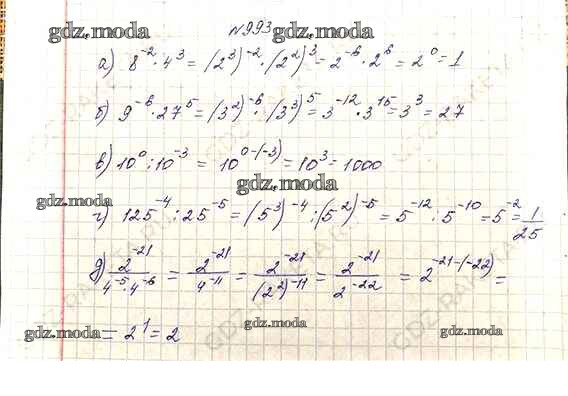 gdz.moda №993 gdz.moda
а) 8⁻²·4³ = (2³)⁻²·(2²)³ = 2⁻⁶·2⁶ = 2⁰ = 1
б) 9⁻⁶·27⁵ = (3²)⁻⁶·(3³)⁵ = 3⁻¹²·3¹⁵ = 3³ = 27
в) 10⁰:10⁻³ = 10⁰⁻⁽⁻³⁾ = 10³ = 1000
gdz.moda
gdz.moda
г) 125⁻⁴:25⁻⁵ = (5³)⁻⁴:(5²)⁻⁵ = 5⁻¹²:5⁻¹⁰ = 5⁻² = 1/25
д) 2⁻²¹/4⁻⁵·4⁻⁶ = 2⁻²¹/4⁻¹¹ = 2⁻²¹/(2²)⁻¹¹ = 2⁻²¹/2⁻²² = 2⁻²¹⁻⁽⁻²²⁾ =
= 2¹ = 2
gdz.moda gdz.moda gdz.moda